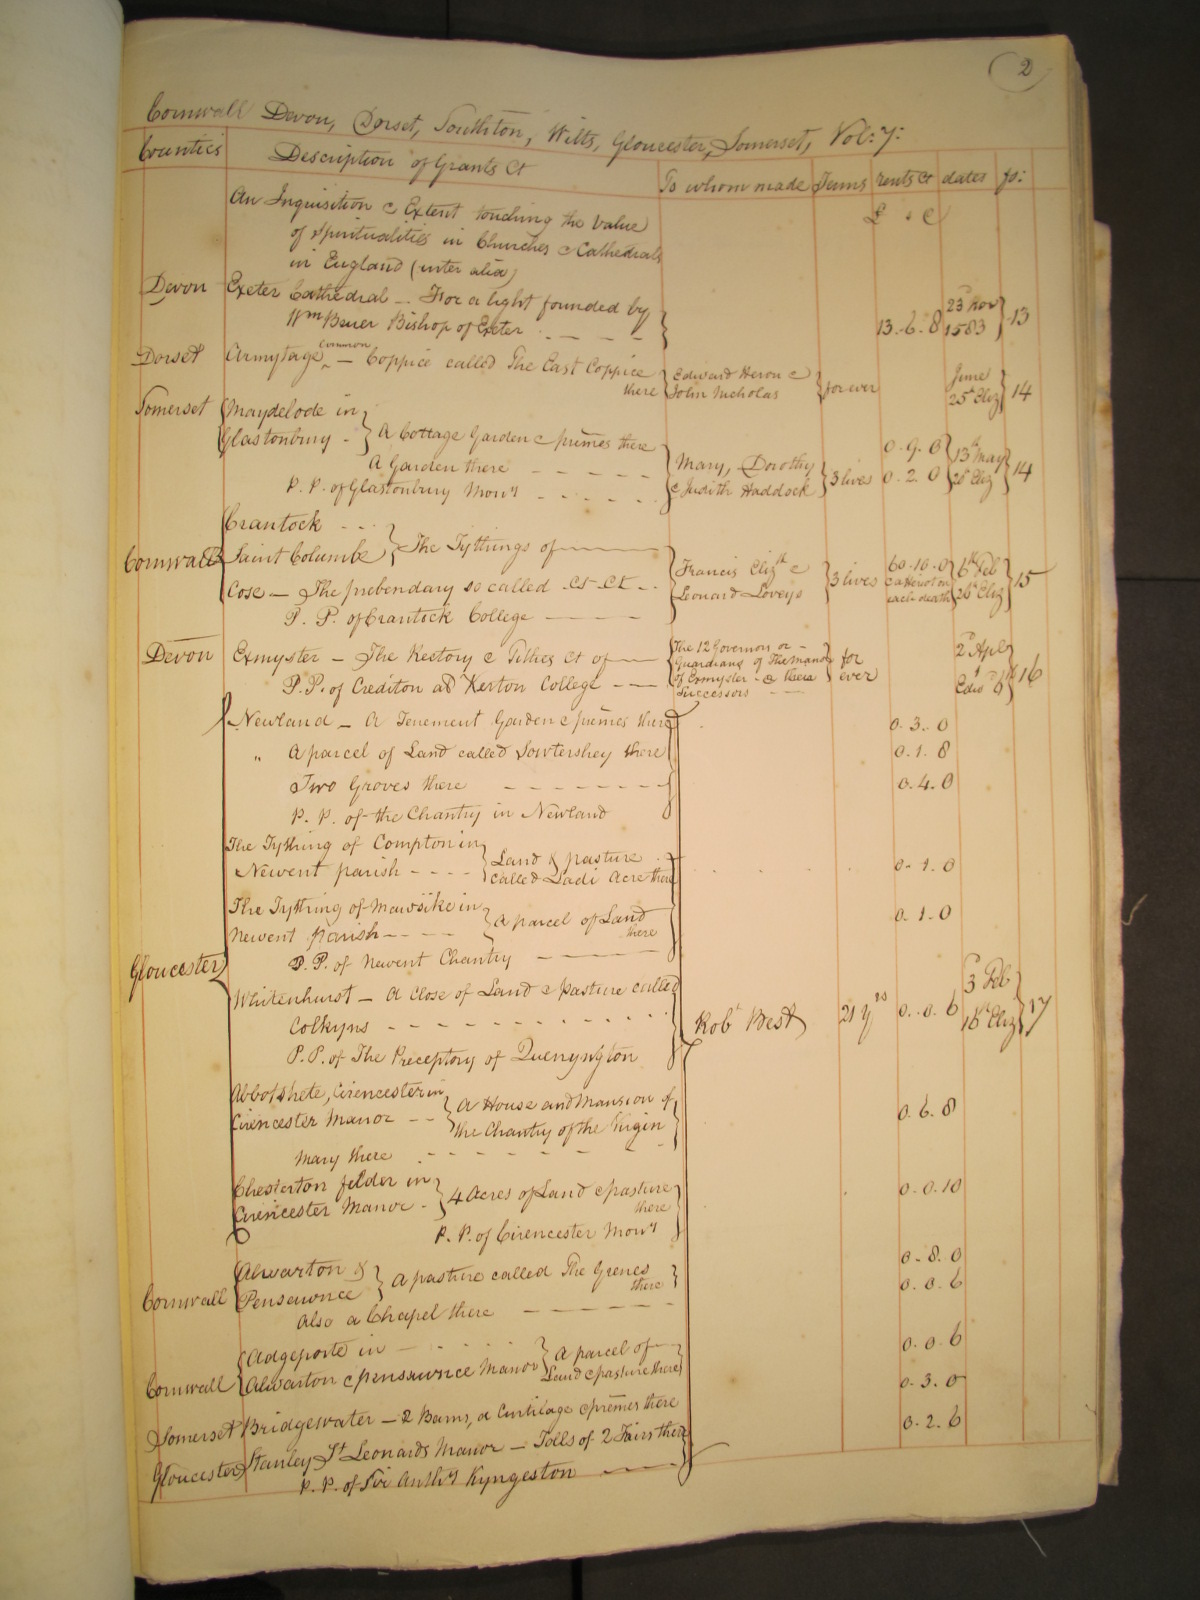 2
Cornwall Devon, Dorset, Southton, Wilts, Gloucester, Somerset, Vol: 7:
Counties Description of Grants &c To whom made Terms rents &c dates fo:
An Inquisition & Extent touching the value £ . c
of Spiritualities in Churches & Cathedrals
in England (inter alia)
Devon Exeter Cathedral — For a light founded by
Wm Bruer Bishop of Exeter 13..6..8 23d Nov 1583 13
Dorset Armytage common — Coppice called The East Coppice
there Edward Heron & John Nicholas for ever June 25th Eliz 14
Somerset Maydelode in
Glastonbury - A Cottage Garden & premes there 0.9.0
A Garden there Mary, Dorothy & Judith Haddock 3 lives 0.2.0 13th May 26 Eliz 14
P. P. of Glastonbury Mony
Crantock
Cornwall Saint Columbe The Tythings of
Cose — The prebendary so called &c &c &c Francis Elizth & Leonard Loveys 3 lives 60.10.0 & a Heriot on each death 6th Feb 26 Eliz 15
P. P. of Crantock College
Devon Exmyster — The Rectory & Tithes &c of The 12 Governors or — Guardians of The Manor of Exmyster & there Successors for ever 2d Apl 1 Edwd 6th 16
P.P. of Crediton ad Kerton College
Newland — A Tenement Garden & premes there 0.3.0
" A parcel of Land called Sowtershey there 0.1.8
Two Groves there 0.4.0
P. P. of the Chantry in Newland
The Tything of Compton in
Newent parish Land & pasture called Ladi Acre there 0.1.0
The Tything of Mawsike in
Newent parish A parcel of Land there 0.1.0
P.P. of Newent Chantry
Gloucester
Whitenhurst — A Close of Land & pasture called
Colkyns Robt Best 21 yrs 0..0.6 3d Feb 18th Eliz 17
P.P. of The Preceptory of Quenyngton
Abbotshete, Cirencester in
Cirencester Manor A House and Mansion of the Chantry of the Virgin 0.6.8
Mary there
Chesterton felder in
Cirencester Manor 4 Acres of Land & pasture there 0.0.10
P. P. of Cirencester Mony
Cornwall Alwarton &
Pensawnce A pasture called The Grenes there 0.8.0
Also a Chapel there 0.0.6
Adgeporte in
Cornwall Alwarton & pensawnce Manor A parcel of Land & pasture there 0.0.6
Somerset Bridgewater — 2 Barns, a Curtilage & premes there 0.3.0
Gloucester Stanley St Leonards Manor — Tolls of 2 Fairs there 0.2.6
P. P. of Sir Anthy Kyngeston